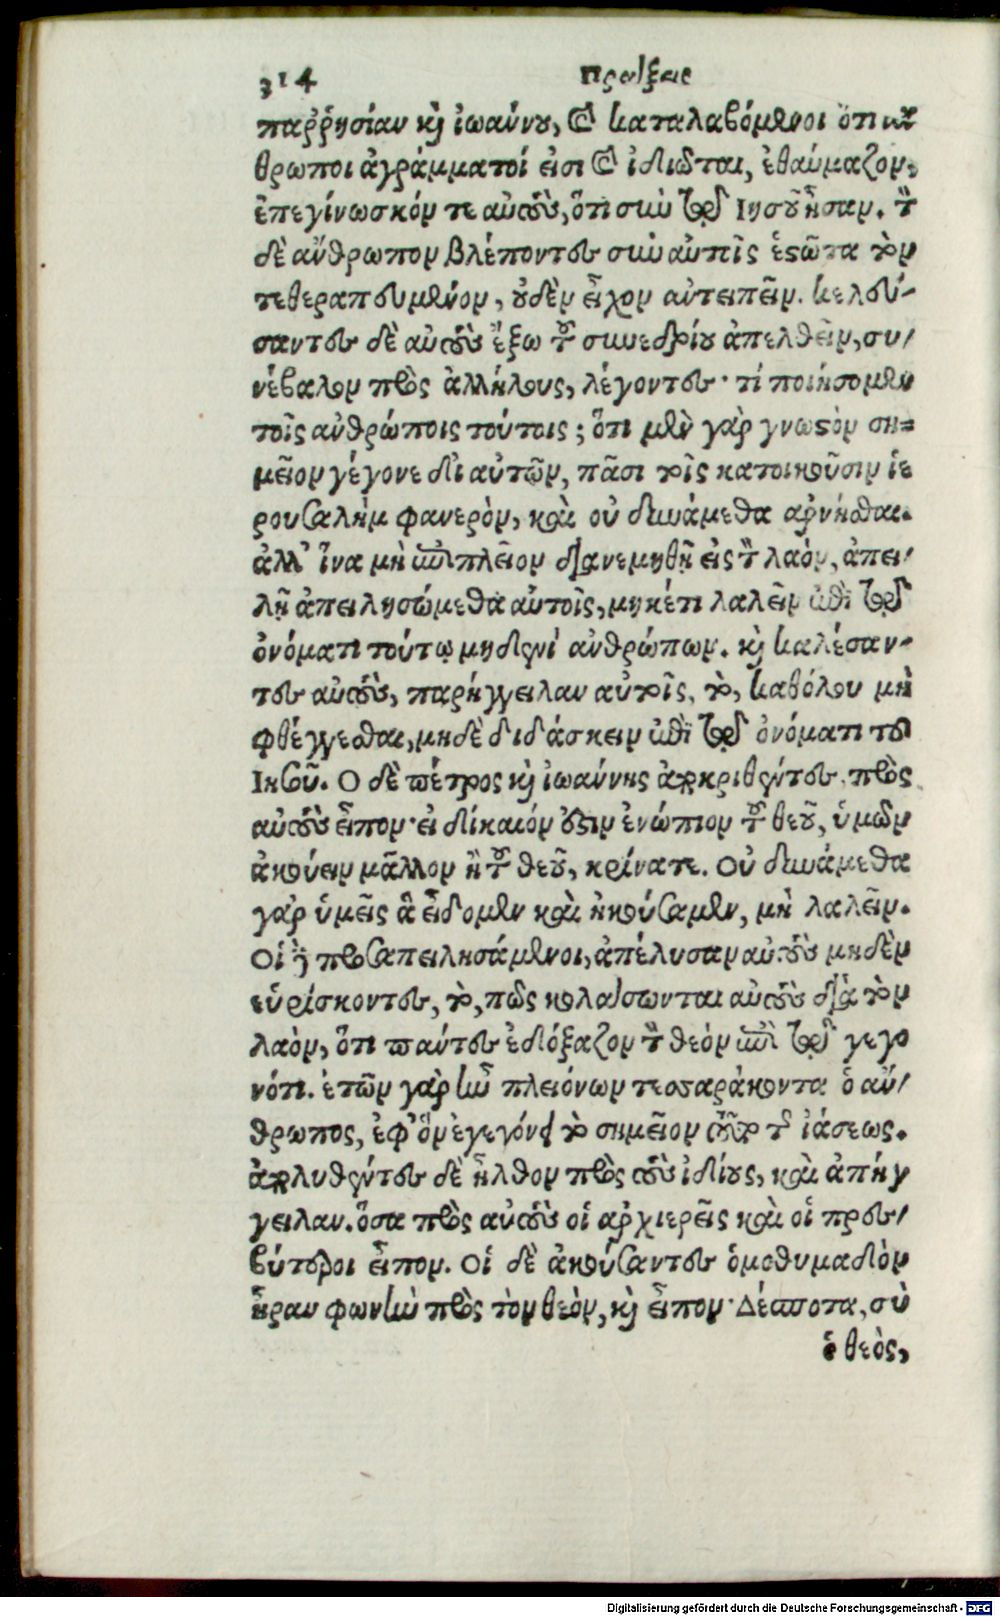 314 Πράξεις
παῤῥησίαν καὶ ἰωάννου, καὶ καταλαβόμενοι ὅτι ἄν
θρωποι ἀγράμματοί εἰσι καὶ ἰδιῶται, ἐθαύμαζον,
ἐπεγίνωσκόν τε αὐτοὺς, ὅτι σὺν τῷ Ιησοῦ ἦσαν. τὸν
δὲ ἄνθρωπον βλέποντες σὺν αὐτοῖς ἑστῶτα τὸν
τεθεραπευμένον, οὐδὲν εἶχον ἀντειπεῖν. κελεύ-
σαντες δὲ αὐτοὺς ἔξω τοῦ συνεδρίου ἀπελθεῖν, συ/
νέβαλον πρὸς ἀλλήλους, λέγοντες· τί ποιήσομεν
τοῖς ἀνθρώποις τούτοις; ὅτι μὲν γὰρ γνωστὸν ση=
μεῖον γέγονε δι αὐτῶν, πᾶσι τοῖς κατοικοῦσιν ἱε
ρουσαλὴμ φανερὸν, καὶ οὐ δυνάμεθα ἀρνήσασθαι.
ἀλλ' ἵνα μὴ ἐπιπλεῖον διανεμηθῇ εἰς τὸν λαὸν, ἀπει/
λῇ ἀπειλησώμεθα αὐτοῖς, μηκέτι λαλεῖν ἐπὶ τῷ
ὀνόματι τούτῳ μηδενὶ ἀνθρώπων. καὶ καλέσαν-
τες αὐτοὺς, παρήγγειλαν αὐτοῖς, τὸ, καθόλου μὴ
φθέγγεσθαι, μηδὲ διδάσκειν ἐπὶ τῷ ὀνόματι τοῦ
Ιησοῦ. Ο δὲ πέτρος καὶ ἰωάννης ἀποκριθέντες, πρὸς
αὐτοὺς εἶπον· εἰ δίκαιόν ἐστιν ἐνώπιον τοῦ θεοῦ, ὑμῶν
ἀκούειν μᾶλλον ἢ τοῦ θεοῦ, κρίνατε. Οὐ δυνάμεθα
γάρ ὑμεῖς ἃ εἴδομεν καὶ ἠκούσαμεν, μὴ λαλεῖν.
Οἱ δὲ προσαπειλησάμενοι, ἀπέλυσαν αὐτοὺς μηδὲν
εὑρίσκοντες, τὸ, πῶς κολάσωνται αὐτοὺς διὰ τὸν
λαὸν, ὅτι πάντες ἐδόξαζον τὸν θεὸν ἐπὶ τῷ γεγο
νότι. ἐτῶν γὰρ ἦν πλειόνων τεσσαράκοντα ὁ ἄν/
θρωπος, ἐφ' ὃν ἐγεγόνει τὸ σημεῖον τοῦτο τῆς ἰάσεως.
ἀπολυθέντες δὲ ἦλθον πρὸς τοὺς ἰδίους, καὶ ἀπήγ
γειλαν. ὅσα πρὸς αὐτοὺς οἱ ἀρχιερεῖς καὶ οἱ πρεσ/
βύτεροι εἶπον. Οἱ δὲ ἀκούσαντες ὁμοθυμαδὸν
ἦραν φωνὴν πρὸς τὸν θεὸν, καὶ εἶπον· Δέσποτα, σὺ
ὁ θεὸς,
Digitalisierung gefördert durch die Deutsche Forschungsgemeinschaft - DFG